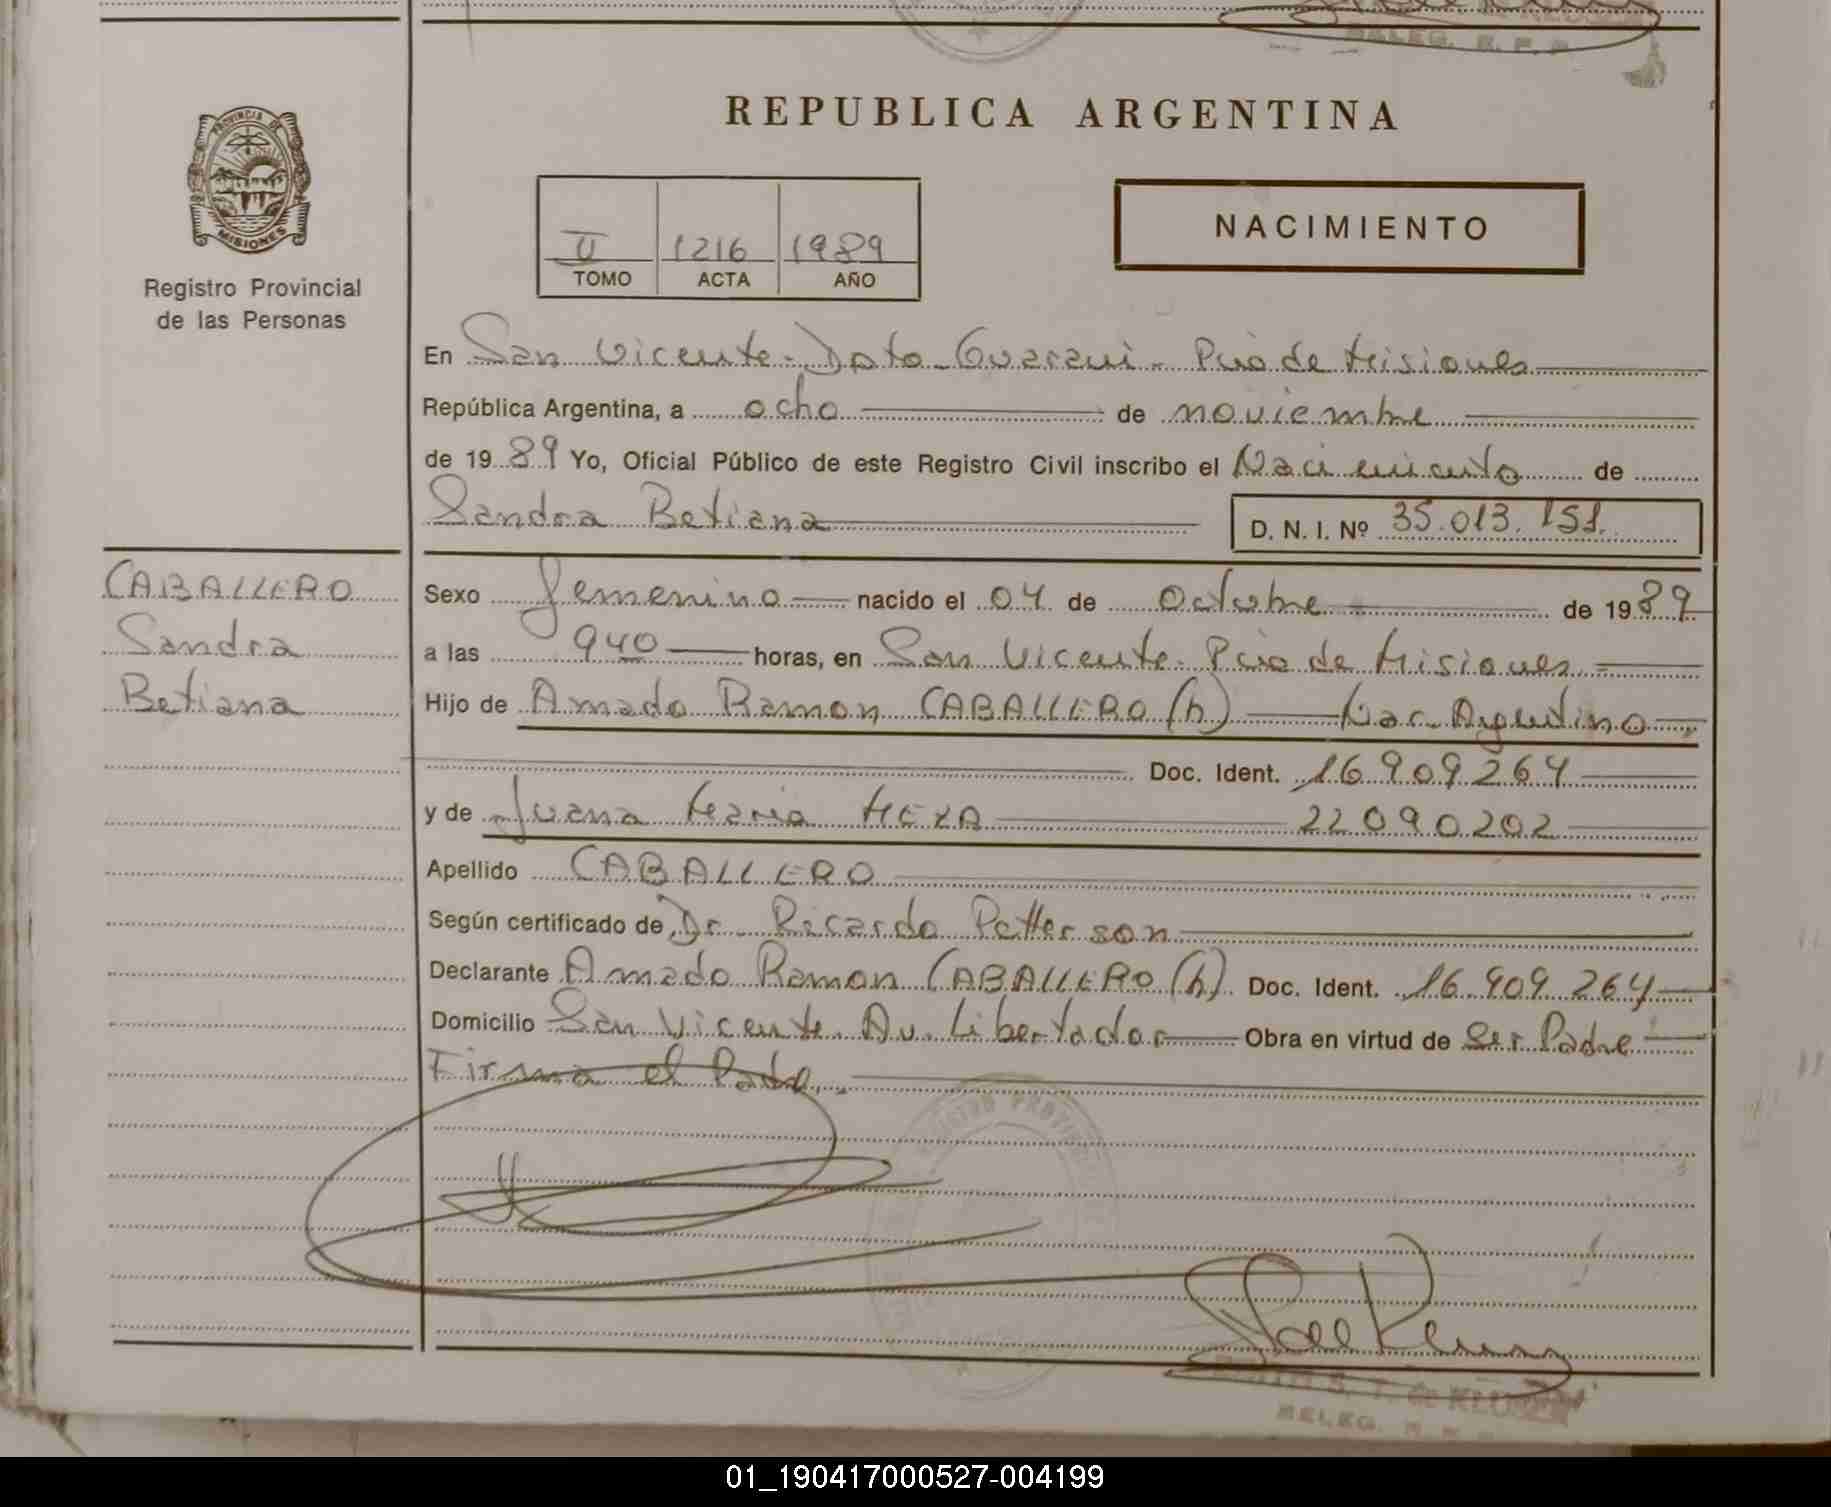 DELEG. R. P. P.
REPUBLICA ARGENTINA
PROVINCIA DE
MISIONES
Registro Provincial
de las Personas
II 1216 1989
TOMO ACTA AÑO
NACIMIENTO
En San Vicente - Dpto. Guarani - Pcia de Misiones
República Argentina, a ocho de noviembre
de 1989 Yo, Oficial Público de este Registro Civil inscribo el Nacimiento de
Sandra Betiana
D. N. I. Nº 35.013.151.
CABALLERO
Sandra
Betiana
Sexo femenino nacido el 04 de Octubre de 1989
a las 940 horas, en San Vicente - Pcia de Misiones
Hijo de Amado Ramon CABALLERO (h) Nac. Argentino
Doc. Ident. 16.909.264
y de Juana Maria 22090202
Apellido CABALLERO
Según certificado de Dr. Ricardo Patterson
Declarante Amado Ramon CABALLERO (h). Doc. Ident. 16.909.264
Domicilio San Vicente. Av. Libertador Obra en virtud de Ser Padre
Firma el Padre.
S. T. de KLUSEN
DELEG.
01_190417000527-004199